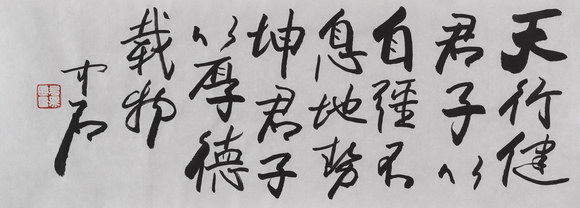 天行健
君子以
自彊不
息地势
坤君子
以厚德
载物
中石